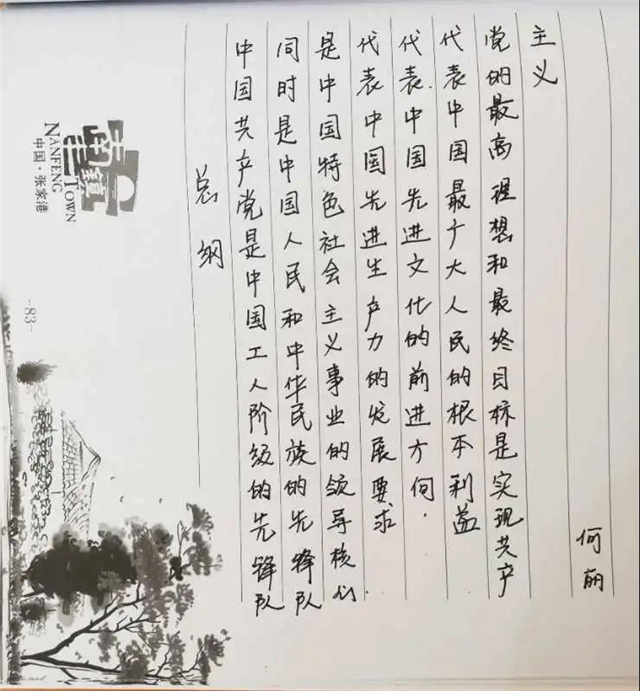 NANFENG
TOWN
中国·张家港
-83-
总纲
中国共产党是中国工人阶级的先锋队
同时是中国人民和中华民族的先锋队
是中国特色社会主义事业的领导核心.
代表中国先进生产力的发展要求
代表.中国先进文化的前进方向.
代表中国最广大人民的根本利益
党的最高理想和最终目标是实现共产
主义
何丽